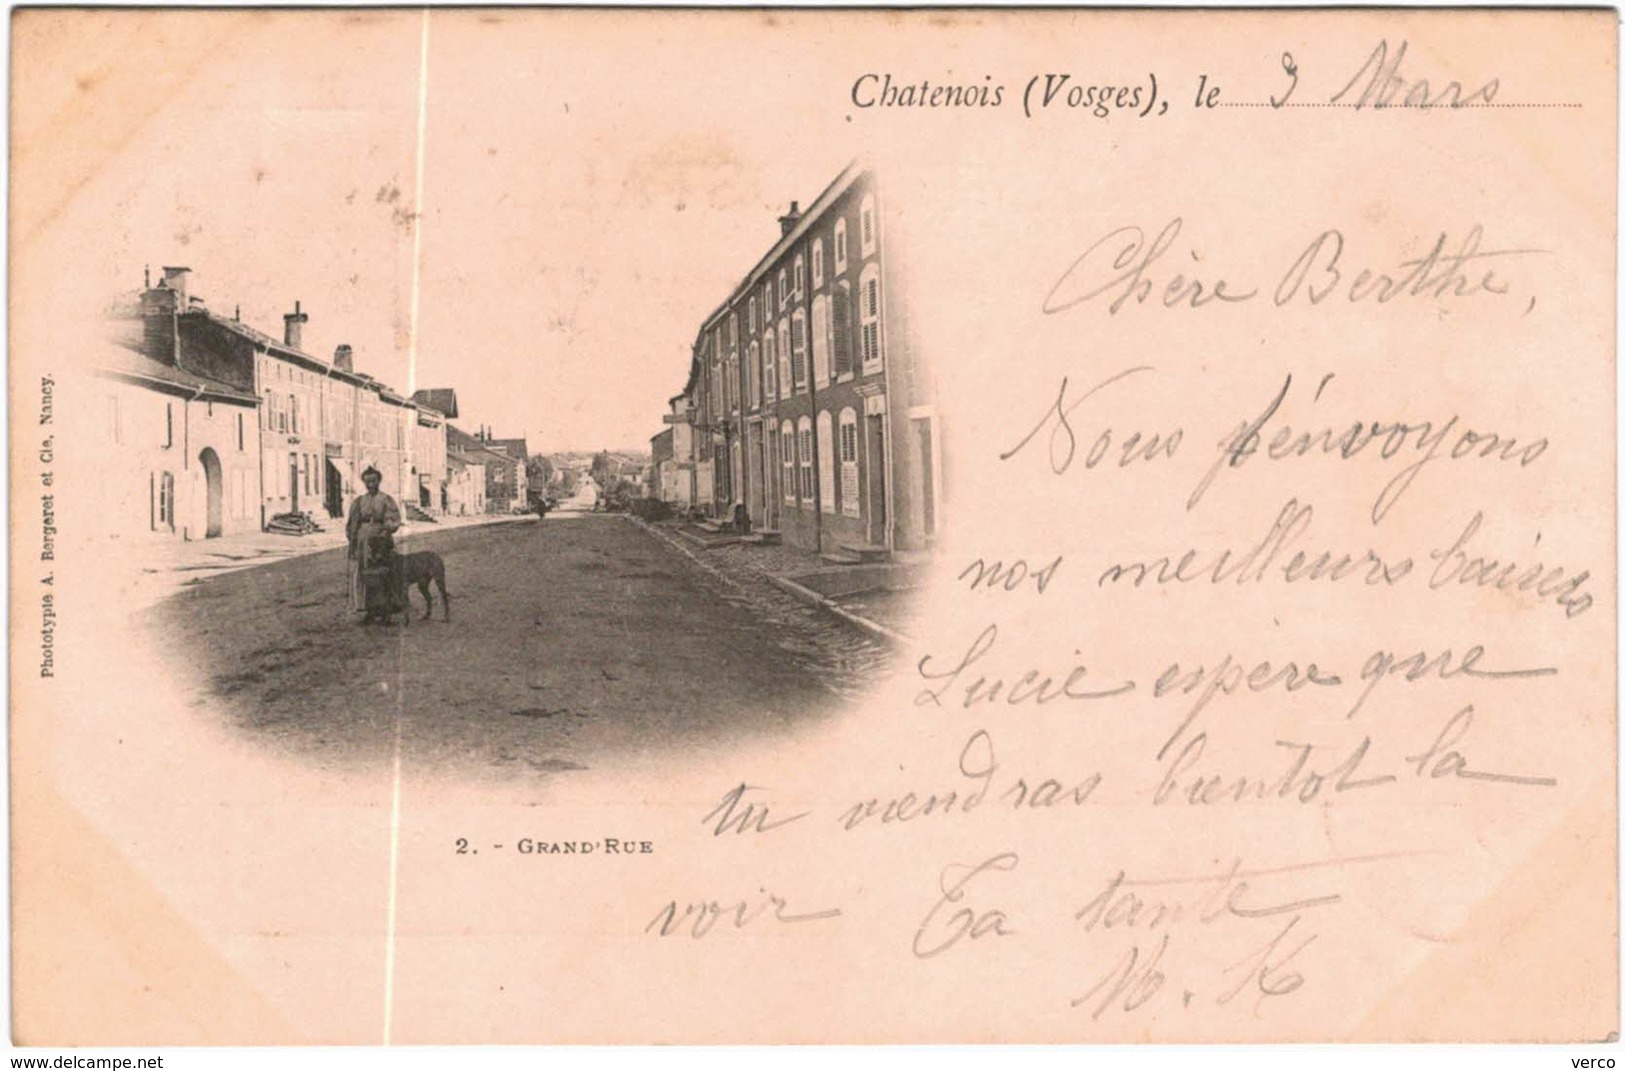 Chatenois (Vosges), le 3 Mars
Chère Berthe,
Nous t'énvoyons
nos meilleurs baisers
Lucie espère que
tu viendras bientot la
voir Ta tante
M. K
2. - GRAND'RUE
Phototypie A. Bergeret et Cie, Nancy.
https://www.delcampe.net
verco